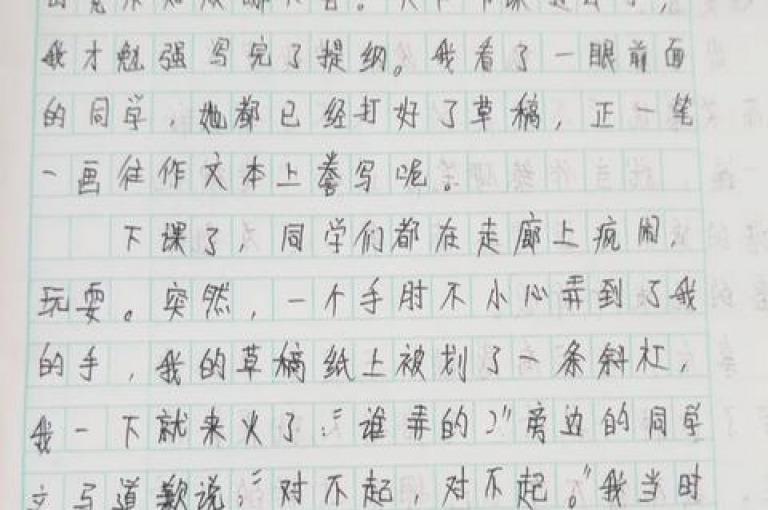 我才勉强写完了提纲。我看了一眼前面
的同学，她都已经打好了草稿，正一笔
一画往作文本上誊写呢。
下课了，同学们都在走廊上疯闹，
玩耍。突然，一个手肘不小心弄到了我
的手，我的草稿纸上被划了一条斜杠，
我一下就来火了：“谁弄的？”旁边的同学
立马道歉说：“对不起，对不起。”我当时